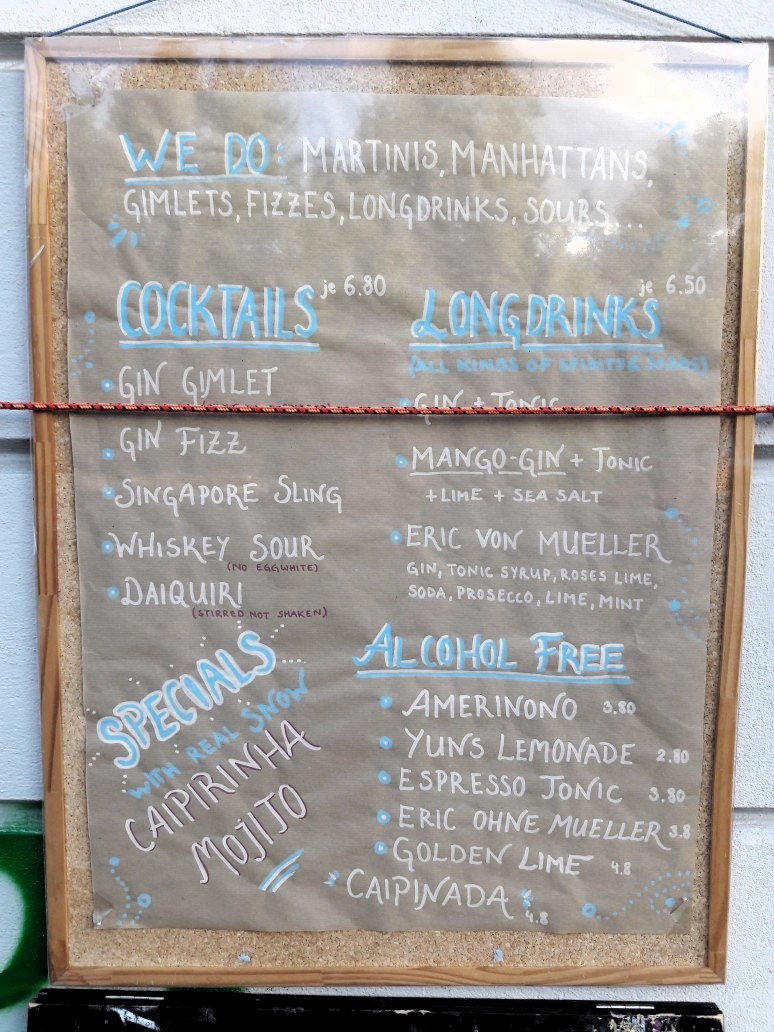 WE DO: MARTINIS, MANHATTANS,
GIMLETS, FIZZES, LONGDRINKS, SOURS...
COCKTAILS je 6.80
GIN GIMLET
GIN FIZZ
SINGAPORE SLING
WHISKEY SOUR
(NO EGGWHITE)
DAIQUIRI
(STIRRED NOT SHAKEN)
LONGDRINKS je 6.50
(ALL KINDS OF
GIN + TONIC
MANGO-GIN + TONIC
+ LIME + SEA SALT
ERIC VON MUELLER
GIN, TONIC SYRUP, ROSES LIME,
SODA, PROSECCO, LIME, MINT
SPECIALS
WITH REAL SNOW
CAIPIRINHA
MOJITO
ALCOHOL FREE
AMERINONO 3.80
YUN'S LEMONADE 2.80
ESPRESSO TONIC 3.80
ERIC OHNE MUELLER 3.8
GOLDEN LIME 4.8
CAIPINADA 4.8